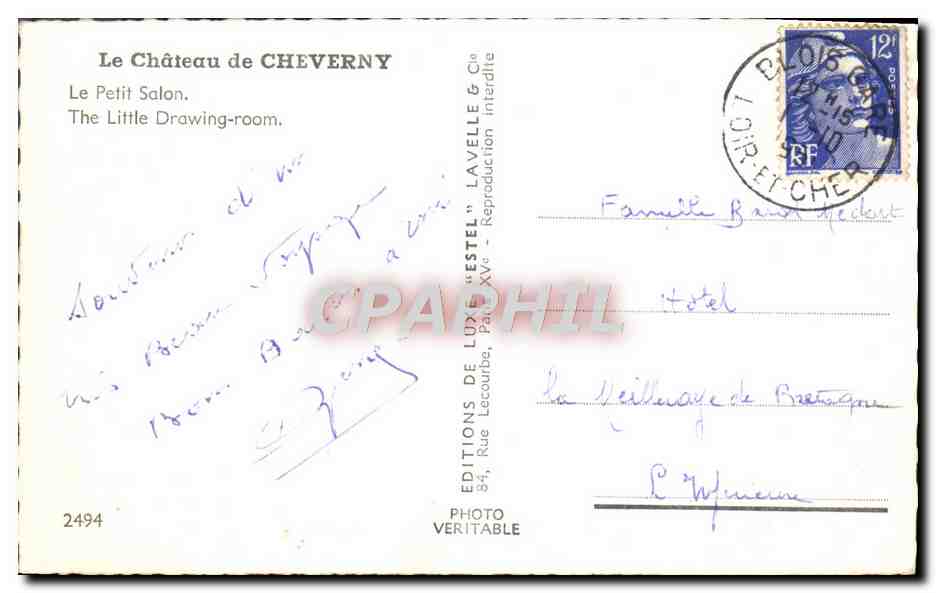 Le Château de CHEVERNY
Le Petit Salon.
The Little Drawing-room.
Souvenir d'un
Beau Voyage
Bons Baisers à
2494
EDITIONS DE LUXE "ESTEL" LAVELLE & Cie
84, Rue Lecourbe, Paris XVe - Reproduction interdite
PHOTO
VERITABLE
CPAPHIL
12F
POSTES
RF
BLOIS GARE
LOIR-ET-CHER
Famille
Hotel
La Meilleraye de Bretagne
L. Inférieure